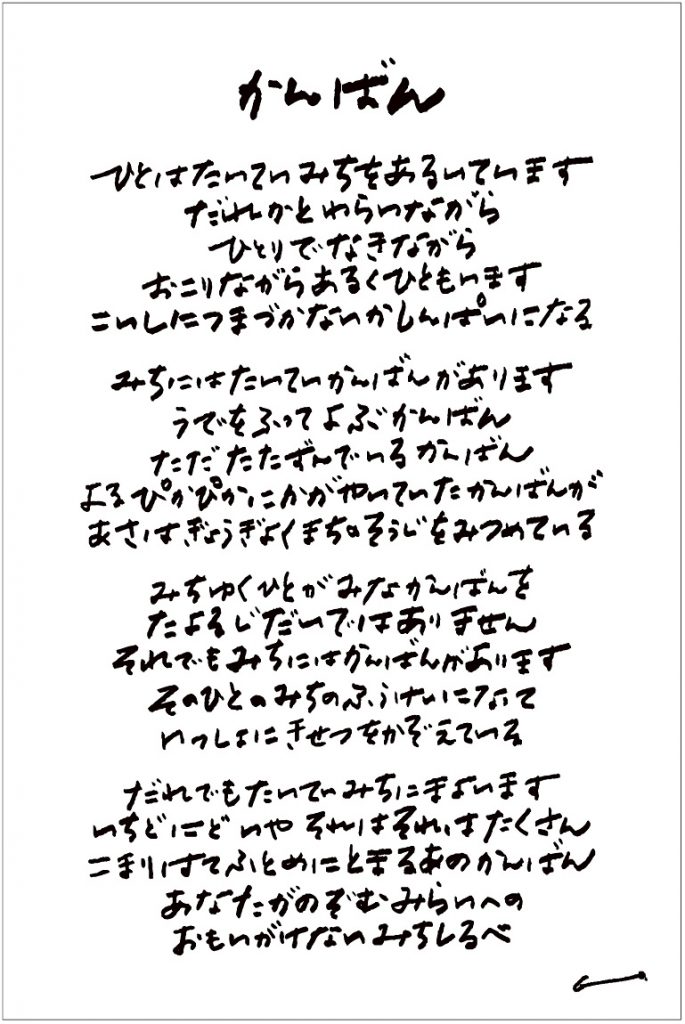 かんばん
ひとはたいていみちをあるいています
だれかとわらいながら
ひとりでなきながら
おこりながらあるくひともいます
こいしにつまづかないかしんぱいになる
みちにはたいていかんばんがあります
うでをふってよぶかんばん
ただたたずんでいるかんばん
よるぴかぴかにかがやいていたかんばんが
あさはぎょうぎよくまちのそうじをみつめている
みちゆくひとがみなかんばんを
たよるじだいではありません
それでもみちにはかんばんがあります
そのひとのみちのふうけいになって
いっしょにきせつをかぞえている
だれでもたいていみちにまよいます
いちどにど いや それはそれはたくさん
こまりはてふとめにとまるあのかんばん
あなたがのぞむみらいへの
おもいがけないみちしるべ